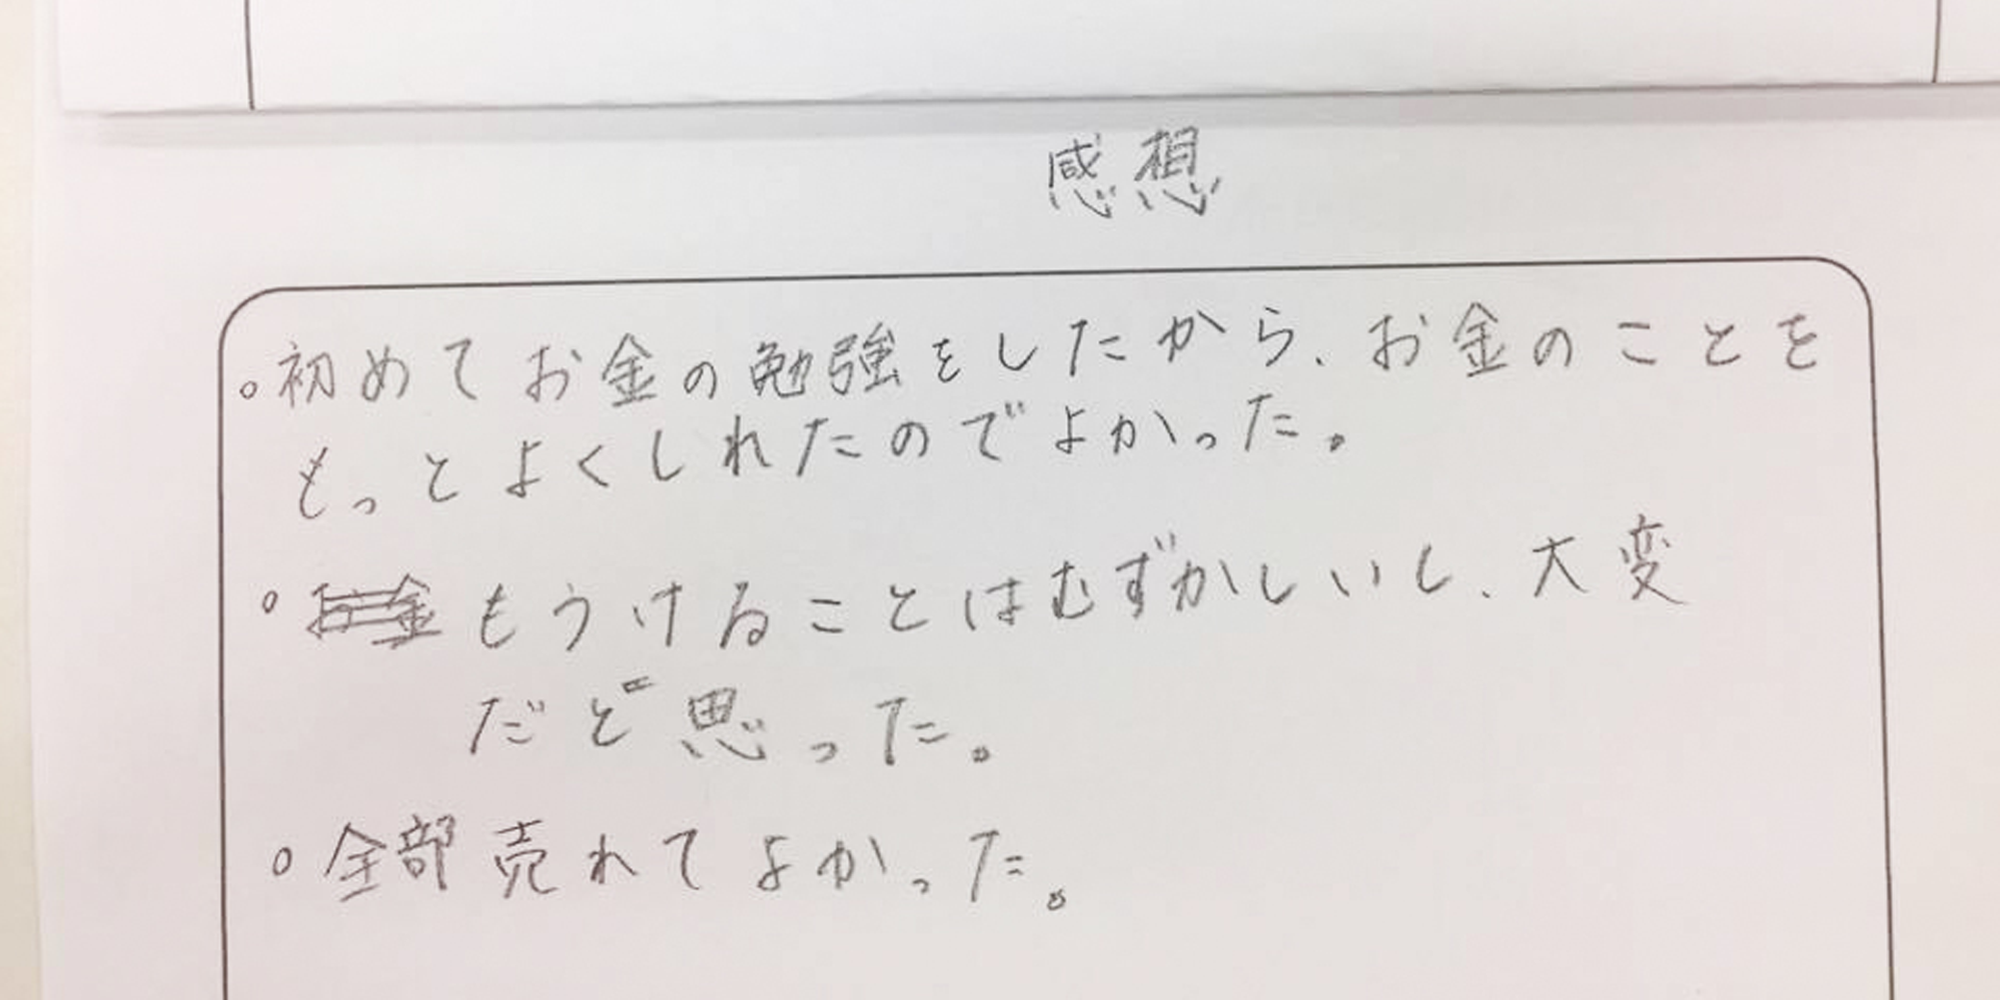 感想
。初めてお金の勉強をしたから、お金のことを
もっとよくしれたのでよかった。
。もうけることはむずかしいし、大変
だと思った。
。全部売れてよかった。